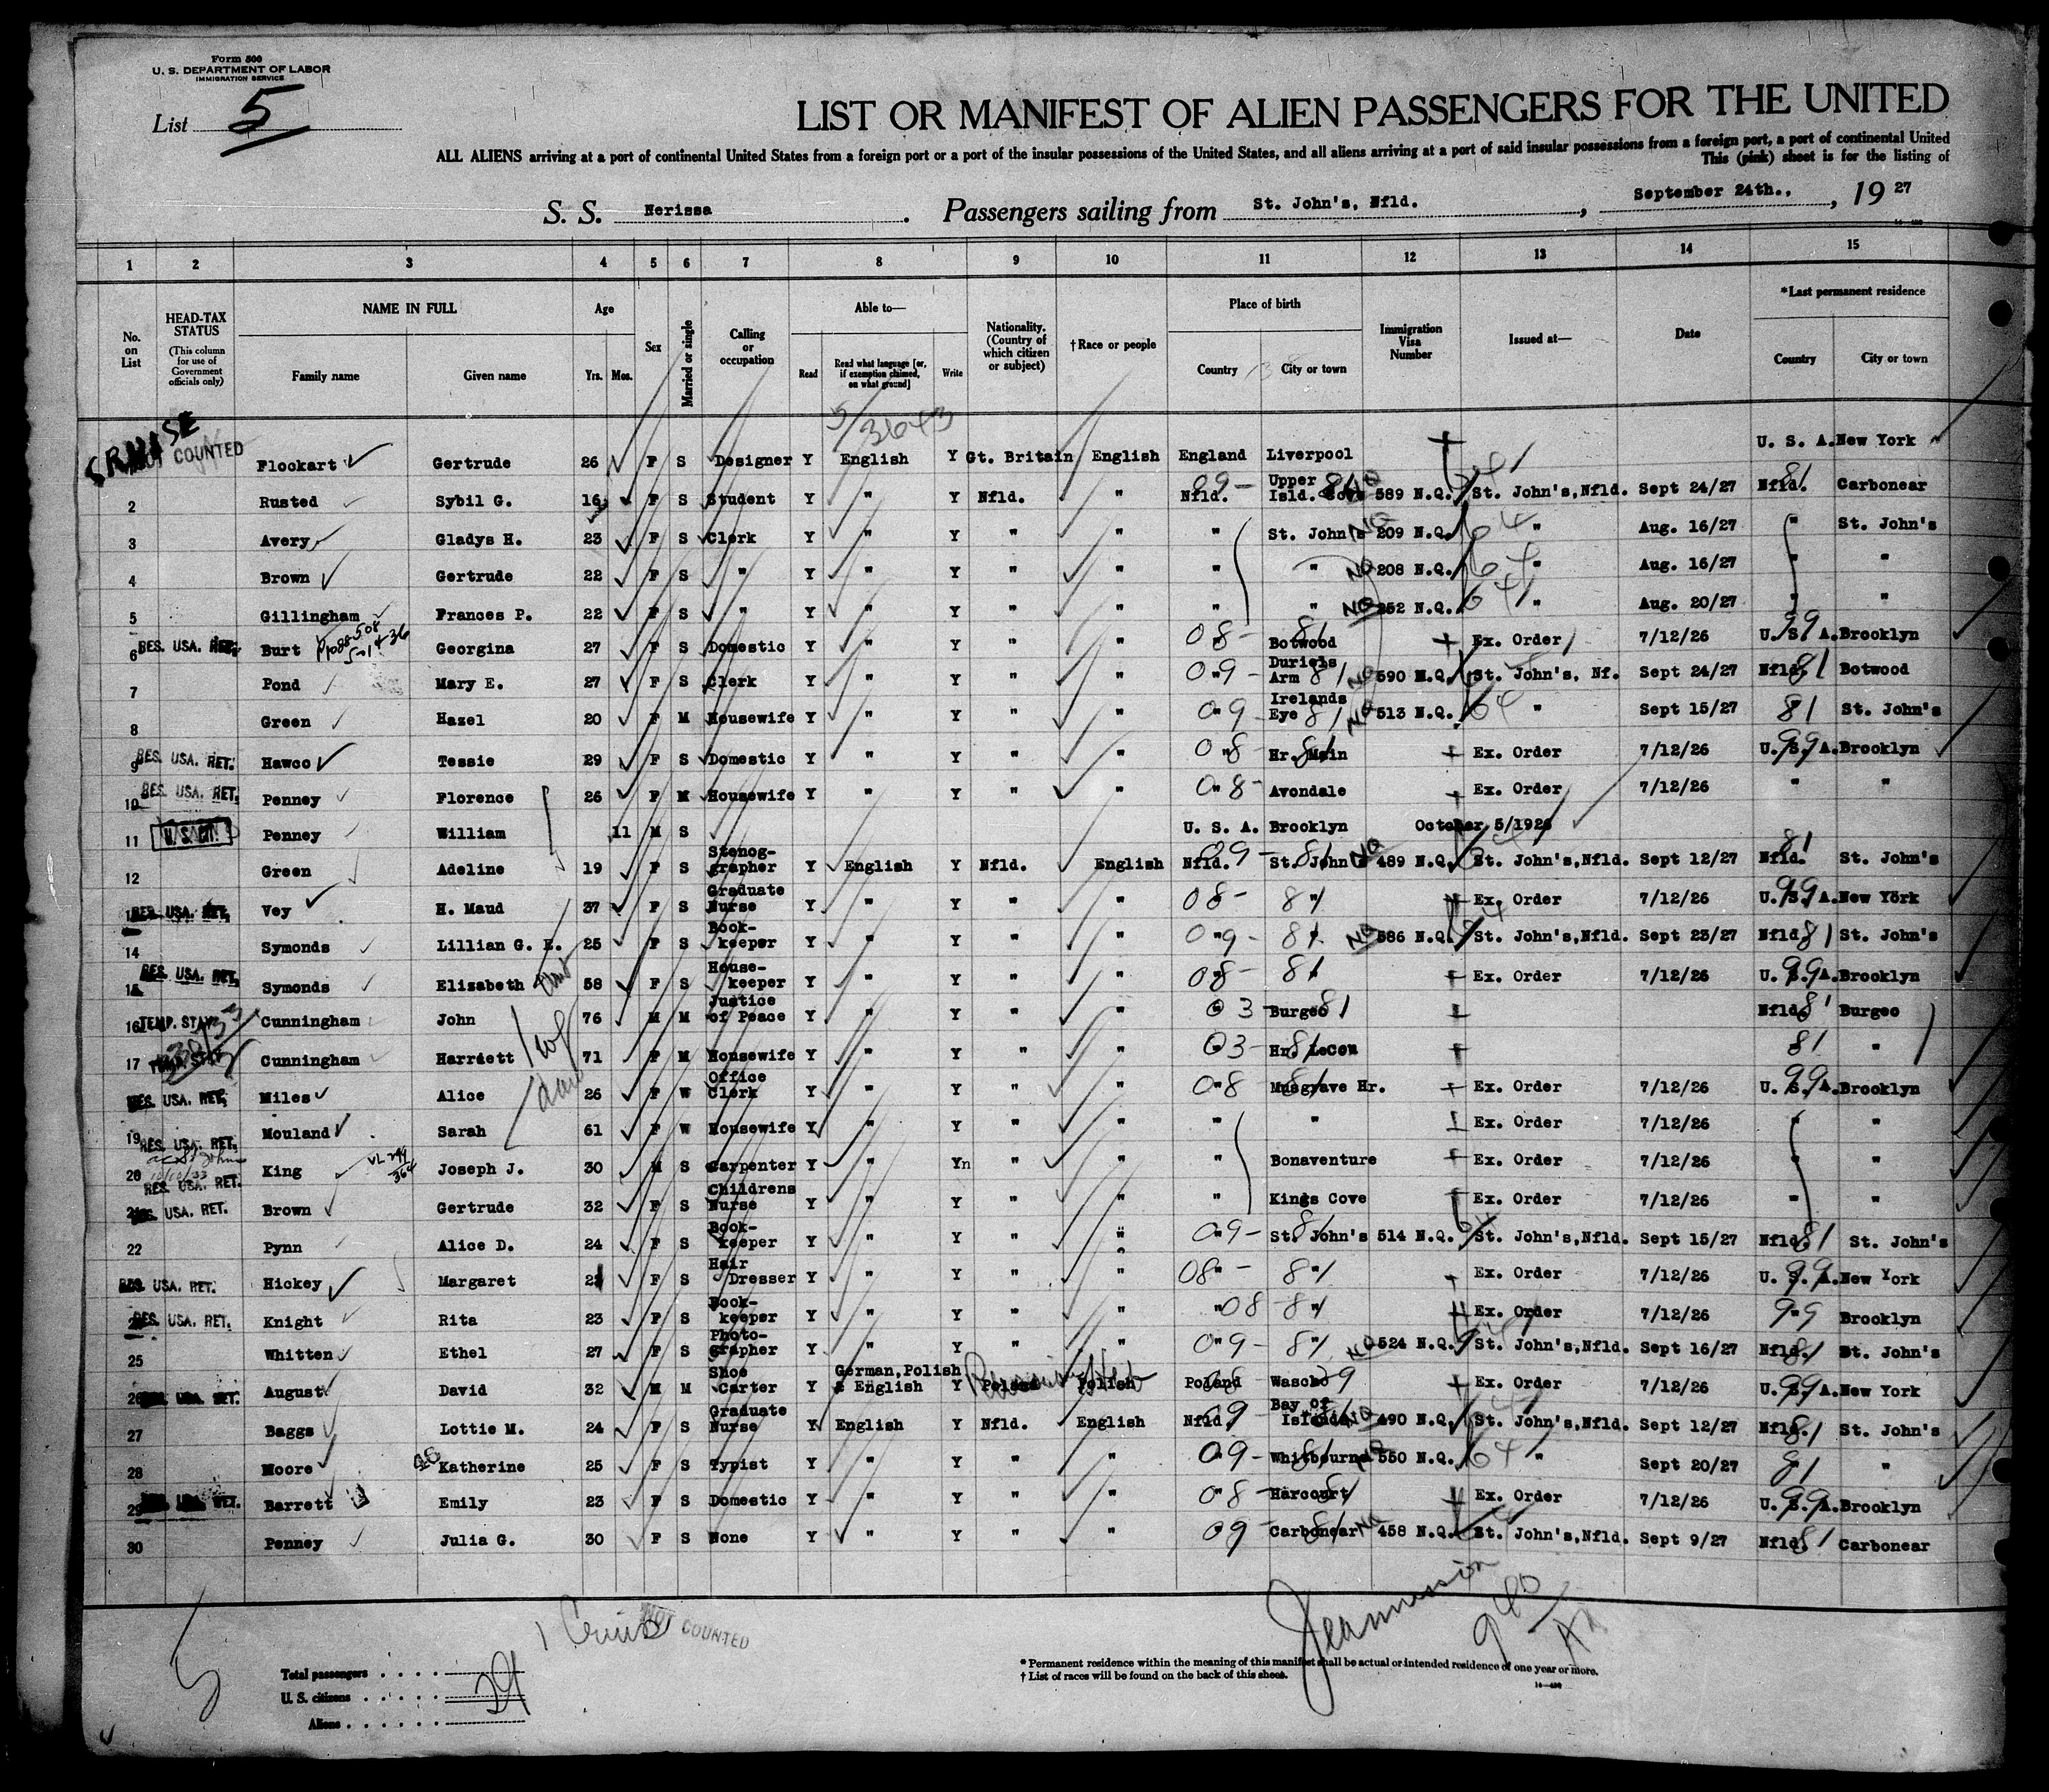 Form 500
U. S. DEPARTMENT OF LABOR
IMMIGRATION SERVICE
List 5
LIST OR MANIFEST OF ALIEN PASSENGERS FOR THE UNITED
ALL ALIENS arriving at a port of continental United States from a foreign port or a port of the insular possessions of the United States, and all aliens arriving at a port of said insular possessions from a foreign port, a port of continental United
This (pink) sheet is for the listing of
S. S. Nerissa. Passengers sailing from St. John's, Nfld., September 24th., , 19 27
1 2 3 4 5 6 7 8 9 10 11 12 13 14 15
No. on List
HEAD-TAX STATUS (This column for use of Government officials only)
NAME IN FULL Family name Given name
Age Yrs. Mos.
Sex
Married or single
Calling or occupation
Able to— Read Read what language [or, if exemption claimed, on what ground] Write
Nationality. (Country of which citizen or subject)
†Race or people
Place of birth Country City or town
Immigration Visa Number
Issued at—
Date
*Last permanent residence Country City or town
5/3643
CRUISE NOT COUNTED Flockart Gertrude 26 F S Designer Y English Y Gt. Britain English England Liverpool U. S. A. New York
2 Rusted Sybil G. 16 F S Student Y " Y Nfld. " Nfld. 09- Upper Isld. Cove 589 N.Q. St. John's,Nfld. Sept 24/27 Nfld. 81 Carbonear
3 Avery Gladys H. 23 F S Clerk Y " Y " " " St. John's 209 N.Q. 64 " Aug. 16/27 " St. John's
4 Brown Gertrude 22 F S " Y " Y " " " " NQ 208 N.Q. 64 " Aug. 16/27 " "
5 Gillingham Frances P. 22 F S " Y " Y " " " " NQ 252 N.Q. 64 " Aug. 20/27 " "
6 RES. USA. RET. Burt Georgina 27 F S Domestic Y " Y " " 08- 81 Botwood Ex. Order 7/12/26 U. S. A. 99 Brooklyn
7 Pond Mary E. 27 F S Clerk Y " Y " " 09- Durrels Arm 81 NQ 590 N.Q. St. John's, Nf. Sept 24/27 Nfld. 81 Botwood
8 Green Hazel 20 F M Housewife Y " Y " " 09 Irelands Eye 81 NQ 513 N.Q. 64 " Sept 15/27 81 St. John's
9 RES. USA. RET. Hawco Tessie 29 F S Domestic Y " Y " " 08 Hr. Main 81 Ex. Order 7/12/26 U. S. A. 99 Brooklyn
10 RES. USA. RET. Penney Florence 26 F M Housewife Y " Y " " 08- Avondale Ex. Order 7/12/26 " "
11 U. S. CIT. Penney William 11 M S U. S. A. Brooklyn October 5/1926
12 Green Adeline 19 F S Stenographer Y English Y Nfld. English Nfld. 09- St. John's 81 NQ 489 N.Q. St. John's,Nfld. Sept 12/27 Nfld. 81 St. John's
RES. USA. RET. Vey H. Maud 37 F S Graduate Nurse Y " Y " " 08- 81 " Ex. Order 7/12/26 U. S. A. 99 New York
14 Symonds Lillian G. E. 25 F S Book-keeper Y " Y " " 09- 81 NQ 586 N.Q. St. John's,Nfld. Sept 23/27 Nfld. 81 St. John's
15 RES. USA. RET. Symonds Elizabeth 58 F S House-keeper Y " Y " " 08- 81 Ex. Order 7/12/26 U. S. A. 99 Brooklyn
16 TEMP. STAY Cunningham John 76 M M Justice of Peace Y " Y " " 03- Burgeo 81 Nfld. 81 Burgeo
17 TEMP. STAY Cunningham Harriett 71 F M Housewife Y " Y " " 03- Hr. Lecou 81 81 "
RES. USA. RET. Miles Alice 26 F W Office Clerk Y " Y " " 08 Musgrave Hr. 81 Ex. Order 7/12/26 U. S. A. 99 Brooklyn
19 RES. USA. RET. Mouland Sarah 61 F W Housewife Y " Y " " " " Ex. Order 7/12/26 " "
20 RES. USA. RET. King Joseph J. 30 M S Carpenter Y " Yn " " " Bonaventure Ex. Order 7/12/26 " "
21 RES. USA. RET. Brown Gertrude 32 F S Childrens Nurse Y " Y " " " Kings Cove Ex. Order 7/12/26 " "
22 Pynn Alice D. 24 F S Book-keeper Y " Y " " 09- St. John's 81 514 N.Q. St. John's,Nfld. Sept 15/27 Nfld. 81 St. John's
RES. USA. RET. Hickey Margaret F S Hair Dresser Y " Y " " 08- 81 " Ex. Order 7/12/26 U. S. A. 99 New York
RES. USA. RET. Knight Rita 23 F S Book-keeper Y " Y " " 08- 81 " Ex. Order 7/12/26 99 Brooklyn
25 Whitten Ethel 27 F S Photographer Y " Y " " 09- 81 " NQ 524 N.Q. St. John's,Nfld. Sept 16/27 Nfld. 81 St. John's
26 RES. USA. RET. August David 32 M M Shoe Carter Y German,Polish & English Y Poland Polish Poland Ex. Order 7/12/26 U. S. A. 99 New York
27 Baggs Lottie M. 24 F S Graduate Nurse Y English Y Nfld. English Nfld. 09 Bay of Islands NQ 490 N.Q. St. John's,Nfld. Sept 12/27 Nfld. 81 St. John's
28 Moore Katherine 25 F S Typist Y " Y " " 09- Whitbourne 81 550 N.Q. 64 " Sept 20/27 81 "
29 RES. USA. RET. Barrett Emily 23 F S Domestic Y " Y " " 08- Harcourt 81 Ex. Order 7/12/26 U. S. A. 99 Brooklyn
30 Penney Julia G. 30 F S None Y " Y " " 09 Carbonear 81 458 N.Q. St. John's,Nfld. Sept 9/27 Nfld. 81 Carbonear
1 Cruise NOT COUNTED
940
Total passengers . . . .
U. S. citizens . . . . 29
Aliens . . . . . .
* Permanent residence within the meaning of this manifest shall be actual or intended residence of one year or more.
† List of races will be found on the back of this sheet.